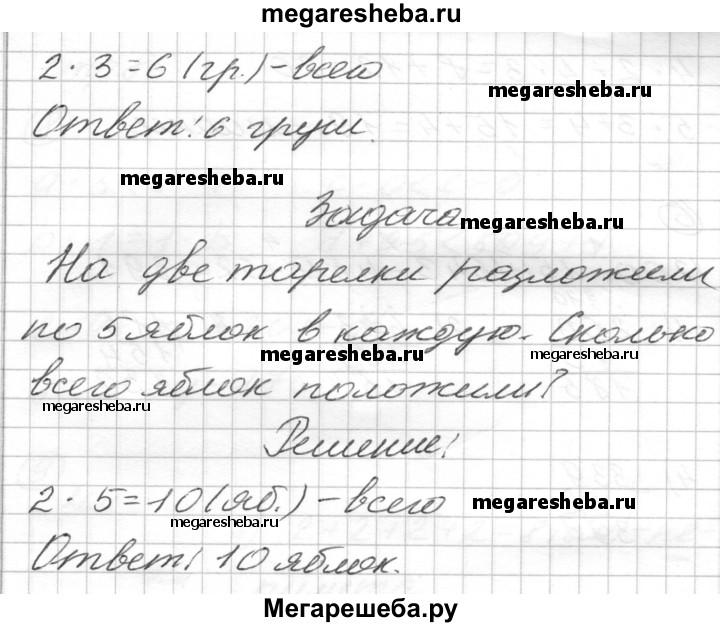 megaresheba.ru
2 · 3 = 6 (гр.) – всего
megaresheba.ru
Ответ: 6 груш.
megaresheba.ru
Задача
megaresheba.ru
На две тарелки разложили
по 5 яблок в каждую. Сколько
megaresheba.ru
megaresheba.ru
всего яблок положили?
megaresheba.ru
Решение:
2 · 5 = 10 (яб.) – всего
megaresheba.ru
megaresheba.ru
Ответ: 10 яблок.
Мегарешеба.ру